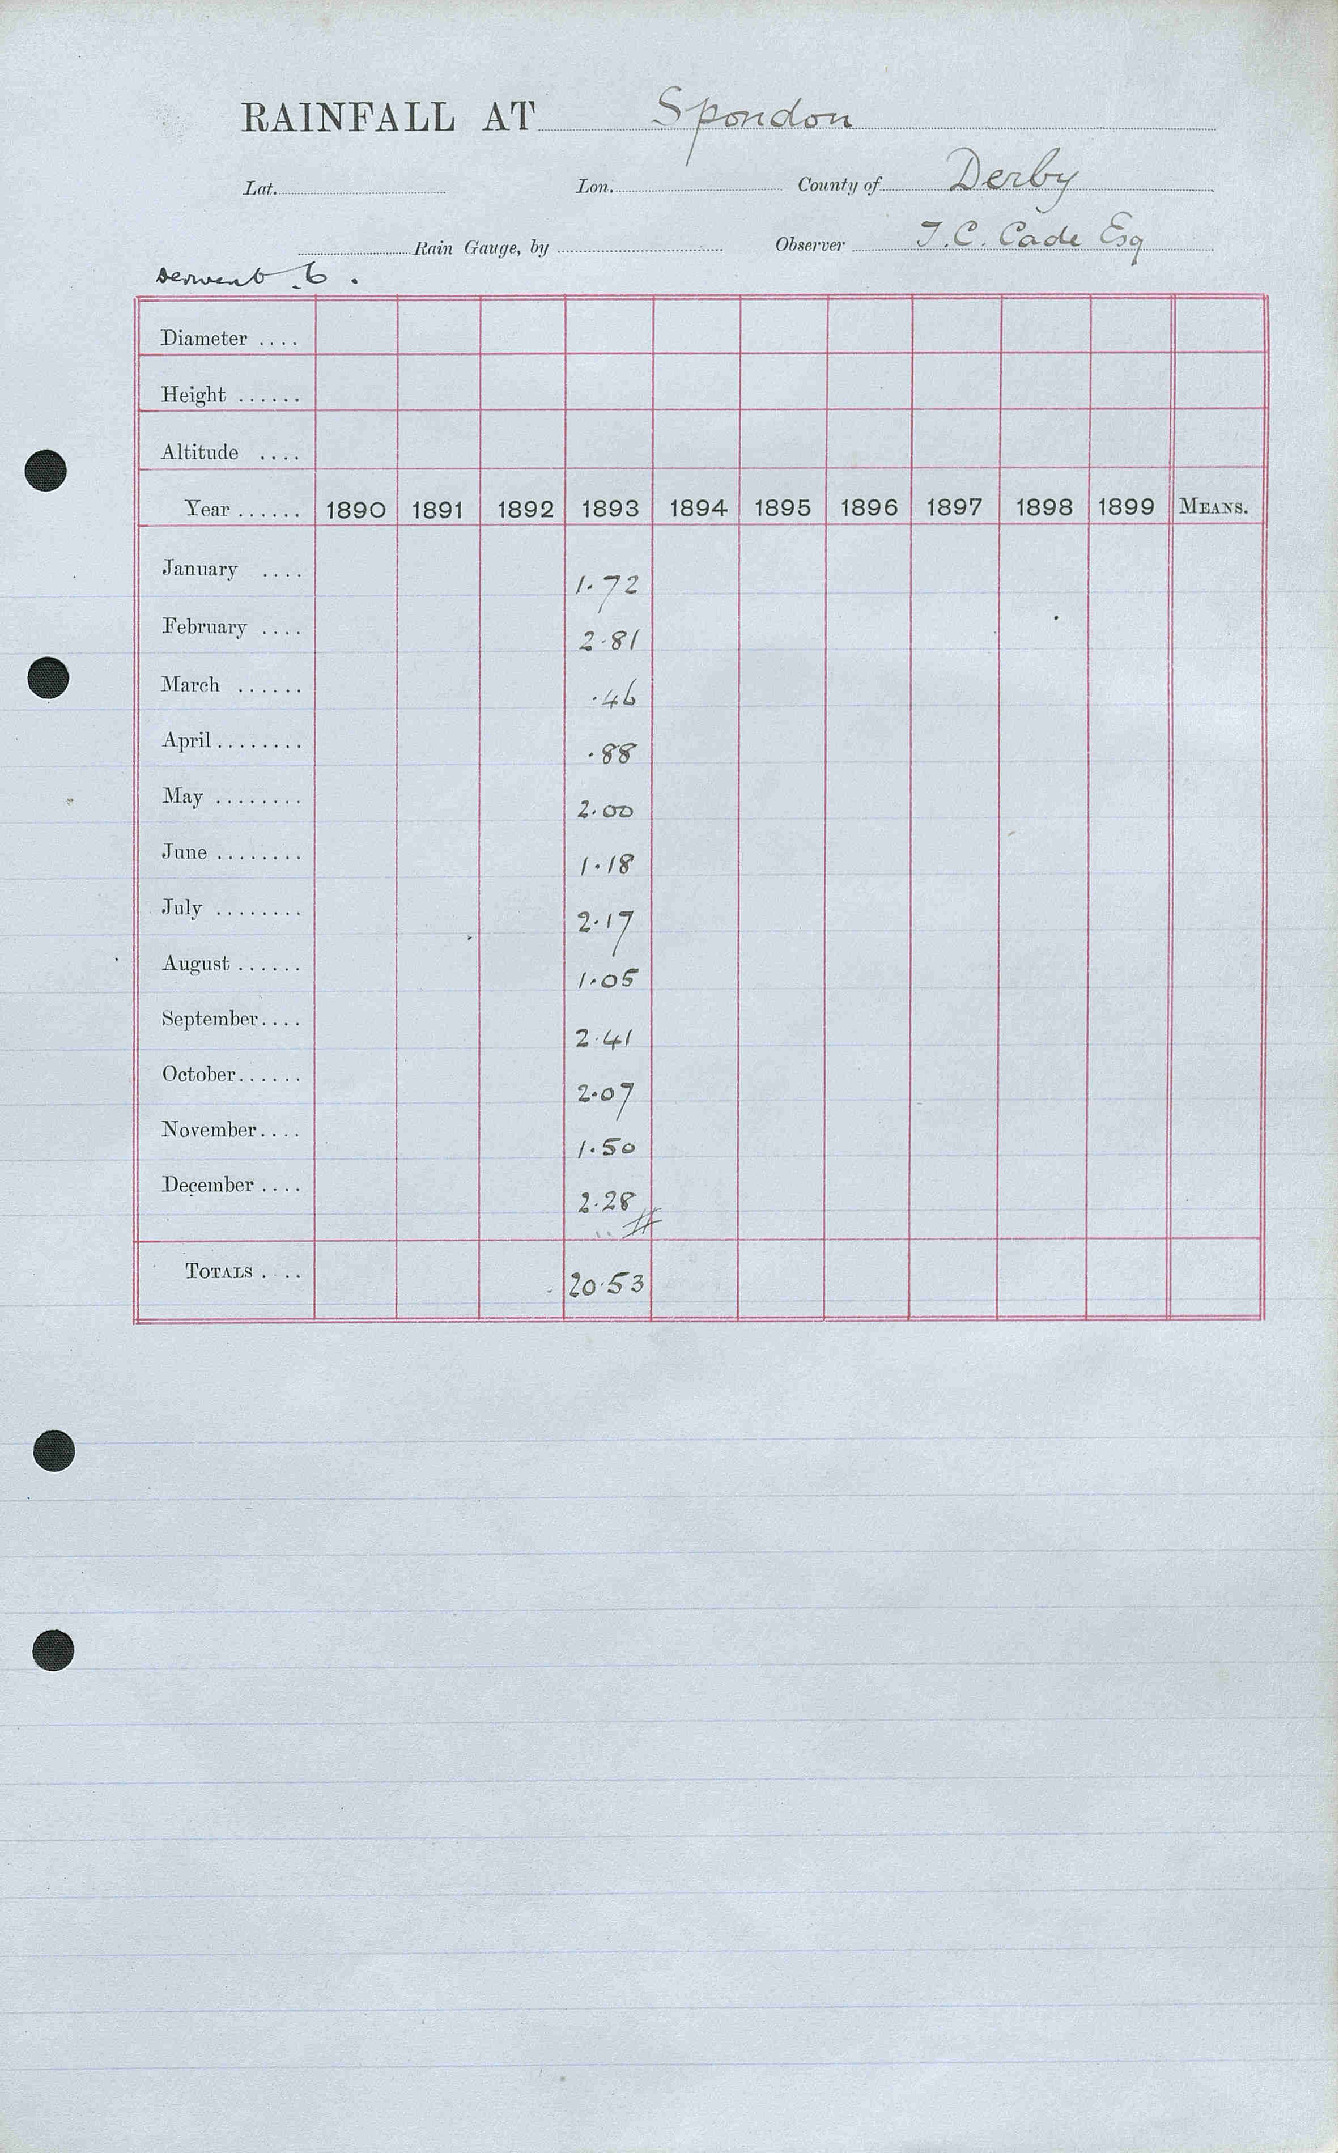 RAINFALL AT Spondon
Lat. Lon. County of Derby
Rain Gauge, by Observer T.C. Cade Esq
Derwent 6.
Diameter ....
Height ......
Altitude ....
Year ...... 1890 1891 1892 1893 1894 1895 1896 1897 1898 1899 MEANS.
January .... 1.72
February .... 2.81
March ...... .46
April ........ .88
May ........ 2.00
June ........ 1.18
July ........ 2.17
August ...... 1.05
September .... 2.41
October ...... 2.07
November .... 1.50
December .... 2.28
TOTALS .... 20.53